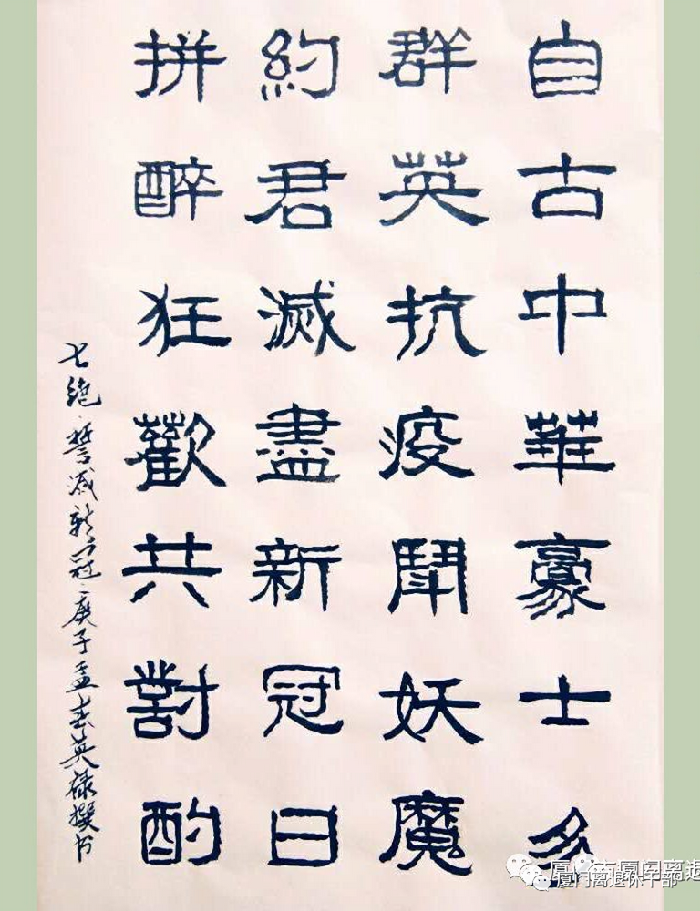 自古中華豪士多
群英抗疫鬪妖魔
約君滅盡新冠日
拼醉狂歡共對酌
七絶·誓滅新冠·庚子孟春英禄撰书
厦门离退休干部